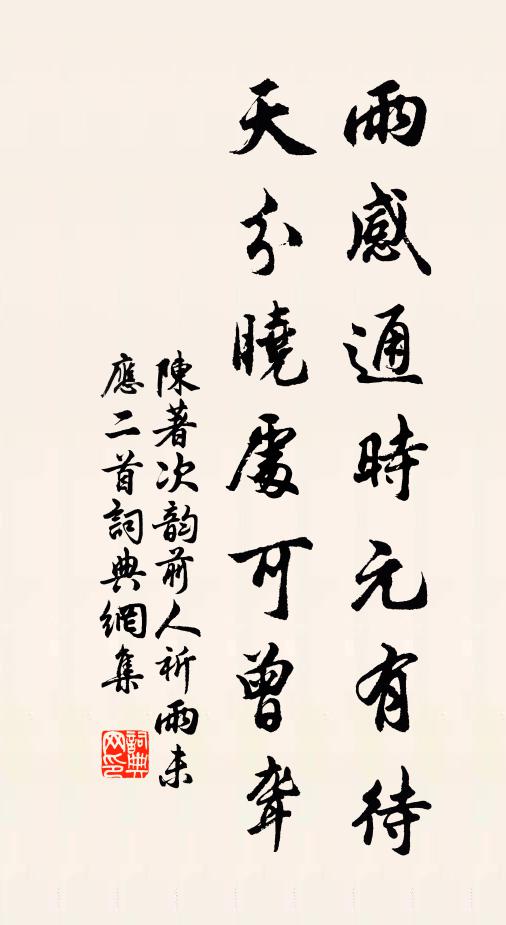 雨感通時元有待
天分曉處可曾聾
陳著次韵前人祈雨未
應二首詞典網集
詞典網印